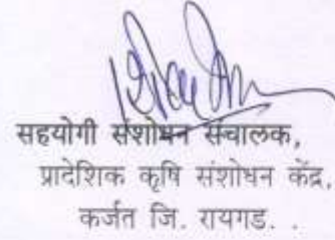 सहयोगी संशोधन संचालक,
प्रादेशिक कृषि संशोधन केंद्र,
कर्जत जि. रायगड. .